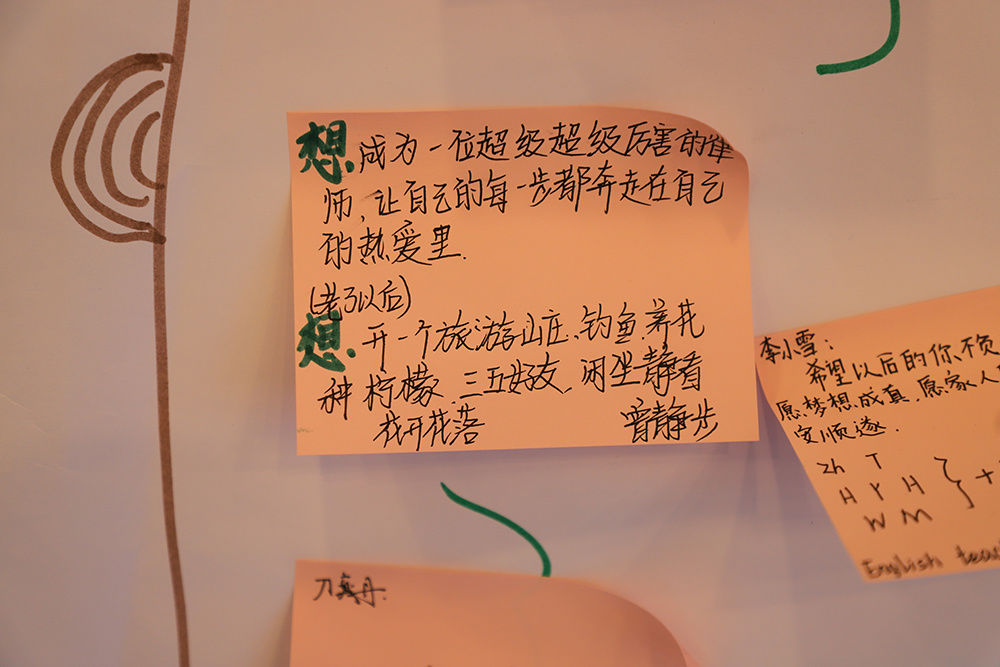 想成为一位超级超级厉害的律
师,让自己的每一步都奔走在自己
的热爱里.
(老了以后)
想.开一个旅游山庄、钓鱼养花
种柠檬.三五好友.闲坐静看
花开花落
静步
李小雪:
希望以后的你、不负
愿梦想成真.愿家人
安顺遂.
zh T
H Y H
W M
English
刀真丹.